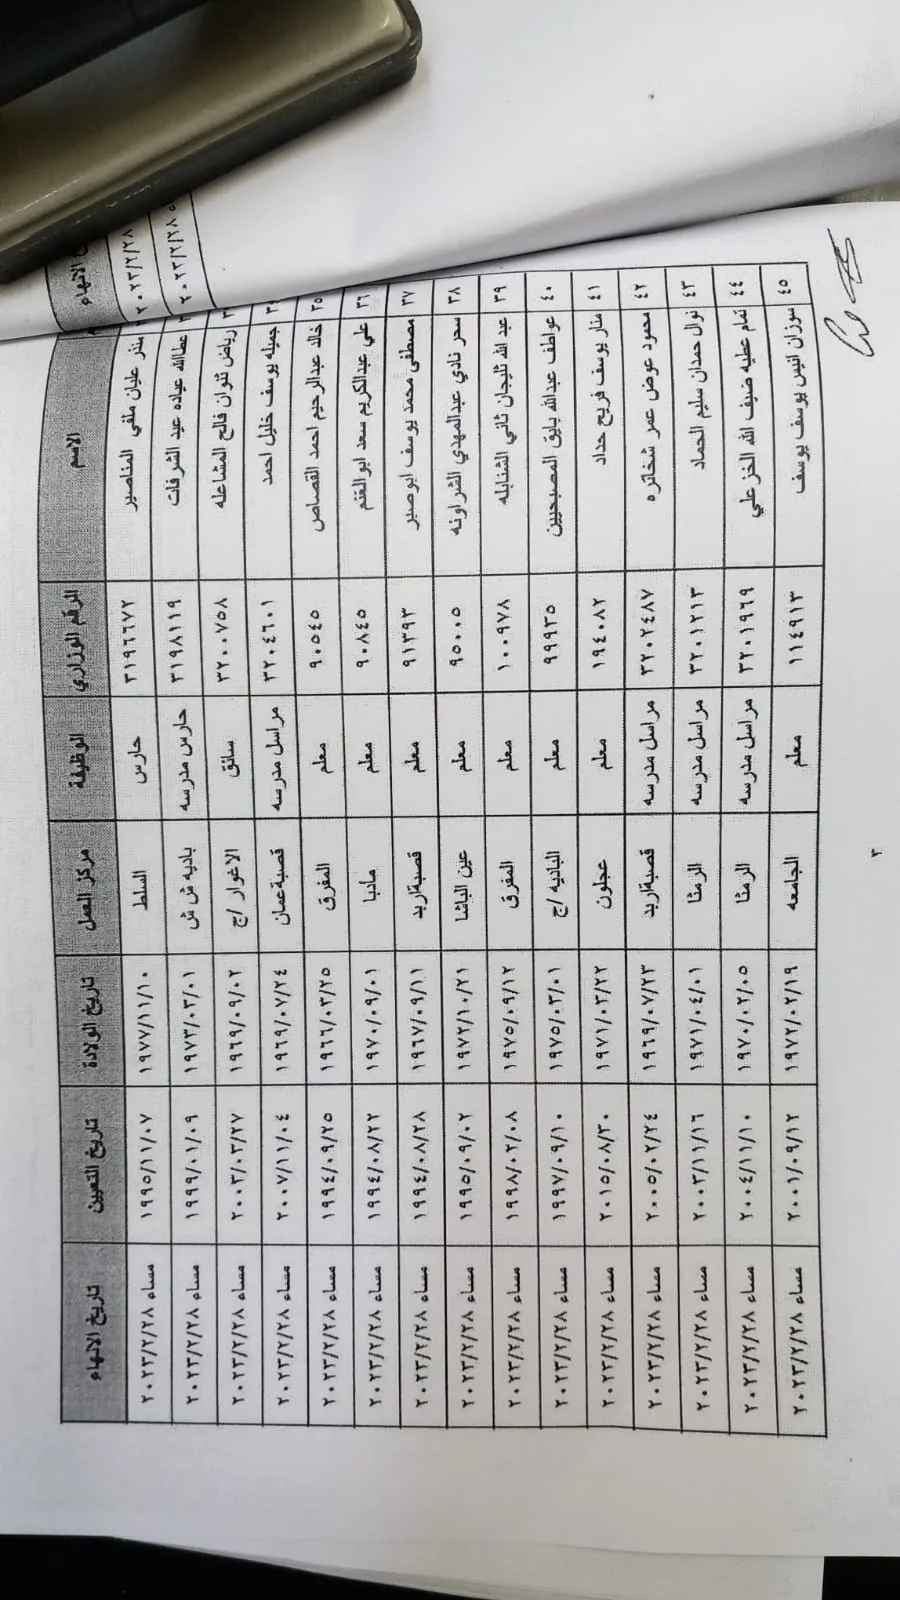 الاسم الرقم الوزاري الوظيفة مركز العمل تاريخ الولادة تاريخ التعيين تاريخ الانهاء
منذر عليان ملفي المناصير ٣١٩٦٦٧٢ حارس السلط ١٩٧٧/١١/١٠ ١٩٩٥/١١/٠٧ مساء ٢٠٢٣/٢/٢٨
عطاالله عياده عيد الشرفات ٣١٩٨١١٩ حارس مدرسه باديه ش ش ١٩٧٣/٠٣/٠١ ١٩٩٩/٠١/٠٩ مساء ٢٠٢٣/٢/٢٨
رياض ثلوان فالح المشاعله ٣٢٠٠٧٥٨ سائق الاغوار /ج ١٩٦٩/٠٩/٠٢ ٢٠٠٣/٠٣/٢٧ مساء ٢٠٢٣/٢/٢٨
جميله يوسف خليل احمد ٣٢٠٤٦٠١ مراسل مدرسه قصبةعمان ١٩٦٩/٠٧/٢٤ ٢٠٠٧/١١/٠٤ مساء ٢٠٢٣/٢/٢٨
٣٥ خالد عبدالرحيم احمد القصاص ٩٠٥٤٥ معلم المفرق ١٩٦٦/٠٣/٢٥ ١٩٩٤/٠٩/٢٥ مساء ٢٠٢٣/٢/٢٨
٣٦ علي عبدالكريم سعد ابوالغنم ٩٠٨٤٥ معلم مادبا ١٩٧٠/٠٩/٠١ ١٩٩٤/٠٨/٢٢ مساء ٢٠٢٣/٢/٢٨
٣٧ مصطفى محمد يوسف ابوصبر ٩١٣٩٣ معلم قصبةاربد ١٩٦٧/٠٩/١١ ١٩٩٤/٠٨/٢٨ مساء ٢٠٢٣/٢/٢٨
٣٨ سحر نادي عبدالمهدي الشراونه ٩٥٠٠٥ معلم عين الباشا ١٩٧٢/١٠/٢١ ١٩٩٥/٠٩/٠٢ مساء ٢٠٢٣/٢/٢٨
٣٩ عبد الله ثليجان ثاني الشنابله ١٠٠٩٧٨ معلم المفرق ١٩٧٥/٠٩/١٢ ١٩٩٨/٠٢/٠٨ مساء ٢٠٢٣/٢/٢٨
٤٠ عواطف عبدالله بايق المصبحيين ٩٩٩٣٥ معلم الباديه /ج ١٩٧٥/٠٣/٠١ ١٩٩٧/٠٩/١٠ مساء ٢٠٢٣/٢/٢٨
٤١ منار يوسف فريح حداد ١٩٤٠٨٢ معلم عجلون ١٩٧١/٠٣/٢٢ ٢٠١٥/٠٨/٣٠ مساء ٢٠٢٣/٢/٢٨
٤٢ محمود عوض عمر شخاتره ٣٢٠٢٤٨٧ مراسل مدرسه قصبةاربد ١٩٦٩/٠٧/٢٣ ٢٠٠٥/٠٢/٢٤ مساء ٢٠٢٣/٢/٢٨
٤٣ نوال حمدان سليم الحماد ٣٢٠١٢١٣ مراسل مدرسه الرمثا ١٩٧١/٠٤/٠١ ٢٠٠٣/١١/١٦ مساء ٢٠٢٣/٢/٢٨
٤٤ تمام عطيه ضيف الله الخزعلي ٣٢٠١٩٦٩ مراسل مدرسه الرمثا ١٩٧٠/٠٢/٠٥ ٢٠٠٤/١١/١٠ مساء ٢٠٢٣/٢/٢٨
٤٥ سوزان انيس يوسف يوسف ١١٤٩١٣ معلم الجامعه ١٩٧٢/٠٢/١٩ ٢٠٠١/٠٩/١٢ مساء ٢٠٢٣/٢/٢٨
٣
الانهاء
٢٠٢٣/٢/٢٨
٢٠٢٣/٢/٢٨